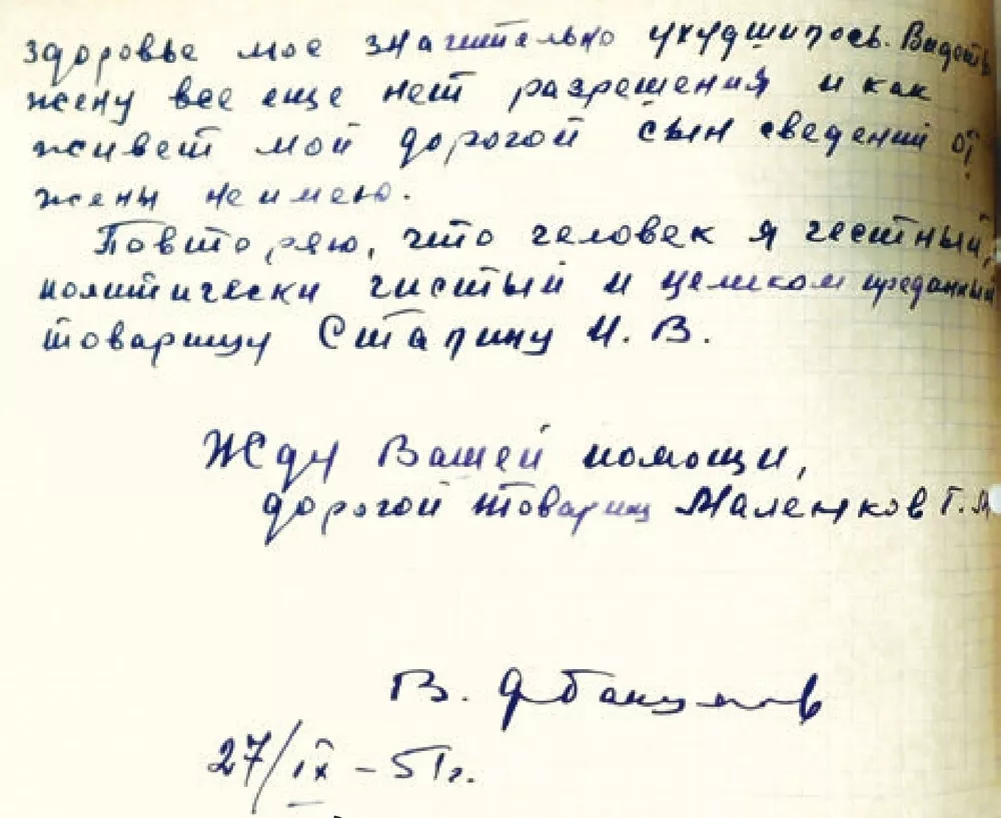 здоровье мое значительно ухудшилось. Видеть
жену все еще нет разрешения и как
живет мой дорогой сын сведений от
жены не имею.
Повторяю, что человек я честный,
политически чистый и целиком преданный
товарищу Сталину И. В.
Жду Вашей помощи,
дорогой товарищ Маленков Г. М
В. Абакумов
27/IX – 51 г.